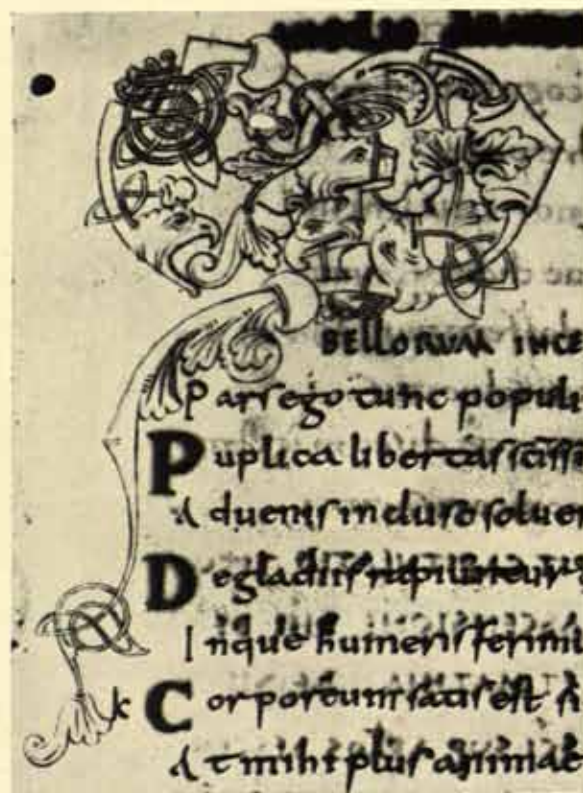 BELLORUM INCE
Pars ego tunc populi
Puplica libertas sciss
Aduenis incluso soluer
De gladiis rapiuntur
Inque humeris ferimu
k Corporeum satis est si
At mihi plus animae